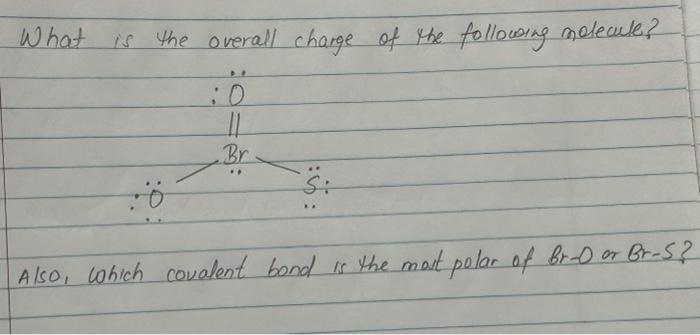 What is the overall charge of the following molecule?
:Ö
||
Br
:O S:
Also, which covalent bond is the most polar of Br-O or Br-S?